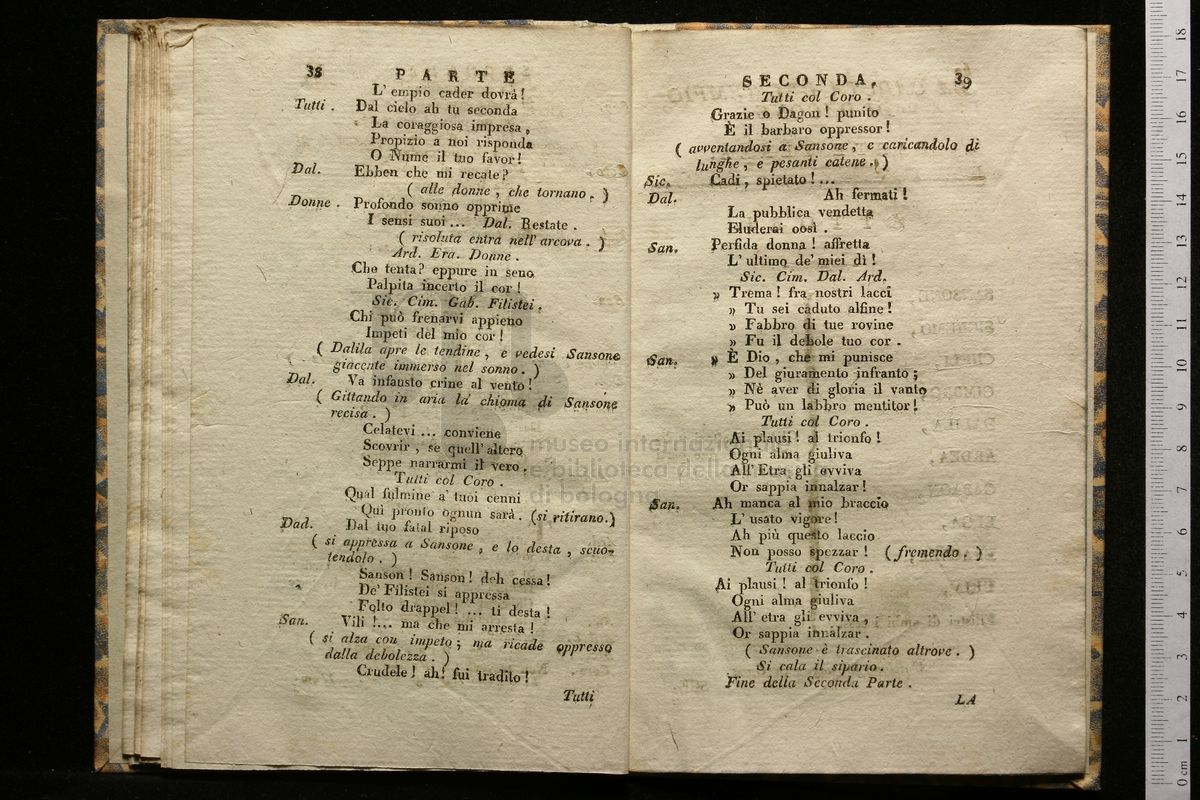 38 PARTE
L' empio cader dovrà!
Tutti. Dal cielo ah tu seconda
La coraggiosa impresa,
Propizio a noi risponda
O Nume il tuo favor!
Dal. Ebben che mi recate?
( alle donne, che tornano. )
Donne. Profondo sonno opprime
I sensi suoi... Dal. Restate.
( risoluta entra nell' arcova. )
Ard. Era. Donne.
Che tenta? eppure in seno
Palpita incerto il cor!
Sic. Cim. Gab. Filistei.
Chi può frenarvi appieno
Impeti del mio cor!
( Dalila apre le tendine, e vedesi Sansone
giacente immerso nel sonno. )
Dal. Va infausto crine al vento!
( Gittando in aria la chioma di Sansone
recisa. )
Celatevi ... conviene
Scovrir, se quell' altero
Seppe narrarmi il vero.
Tutti col Coro.
Qual fulmine a' tuoi cenni
Qui pronto ognun sarà. (si ritirano.)
Dad. Dal tuo fatal riposo
( si appressa a Sansone, e lo desta, scuo-
tendolo. )
Sanson! Sanson! deh cessa!
De' Filistei si appressa
Folto drappel! ... ti desta!
San. Vili!... ma che mi arresta!
( si alza con impeto; ma ricade oppresso
dalla debolezza. )
Crudele! ah! fui tradito!
Tutti
SECONDA. 39
Tutti col Coro.
Grazie o Dagon! punito
È il barbaro oppressor!
( avventandosi a Sansone, e caricandolo di
lunghe, e pesanti catene. )
Sic. Cadi, spietato!...
Dal. Ah fermati!
La pubblica vendetta
Eluderai così.
San. Perfida donna! affretta
L' ultimo de' miei dì!
Sic. Cim. Dal. Ard.
» Trema! fra nostri lacci
» Tu sei caduto alfine!
» Fabbro di tue rovine
» Fu il debole tuo cor.
San. » È Dio, che mi punisce
» Del giuramento infranto;
» Nè aver di gloria il vanto
» Può un labbro mentitor!
Tutti col Coro.
Ai plausi! al trionfo!
Ogni alma giuliva
All' Etra gli evviva
Or sappia innalzar!
San. Ah manca al mio braccio
L' usato vigore!
Ah più questo laccio
Non posso spezzar! (fremendo.)
Tutti col Coro.
Ai plausi! al trionfo!
Ogni alma giuliva
All' etra gli evviva,
Or sappia innalzar.
( Sansone è trascinato altrove. )
Si cala il sipario.
Fine della Seconda Parte.
LA
museo internazionale
e biblioteca della
di bologna
0 cm 1 2 3 4 5 6 7 8 9 10 11 12 13 14 15 16 17 18